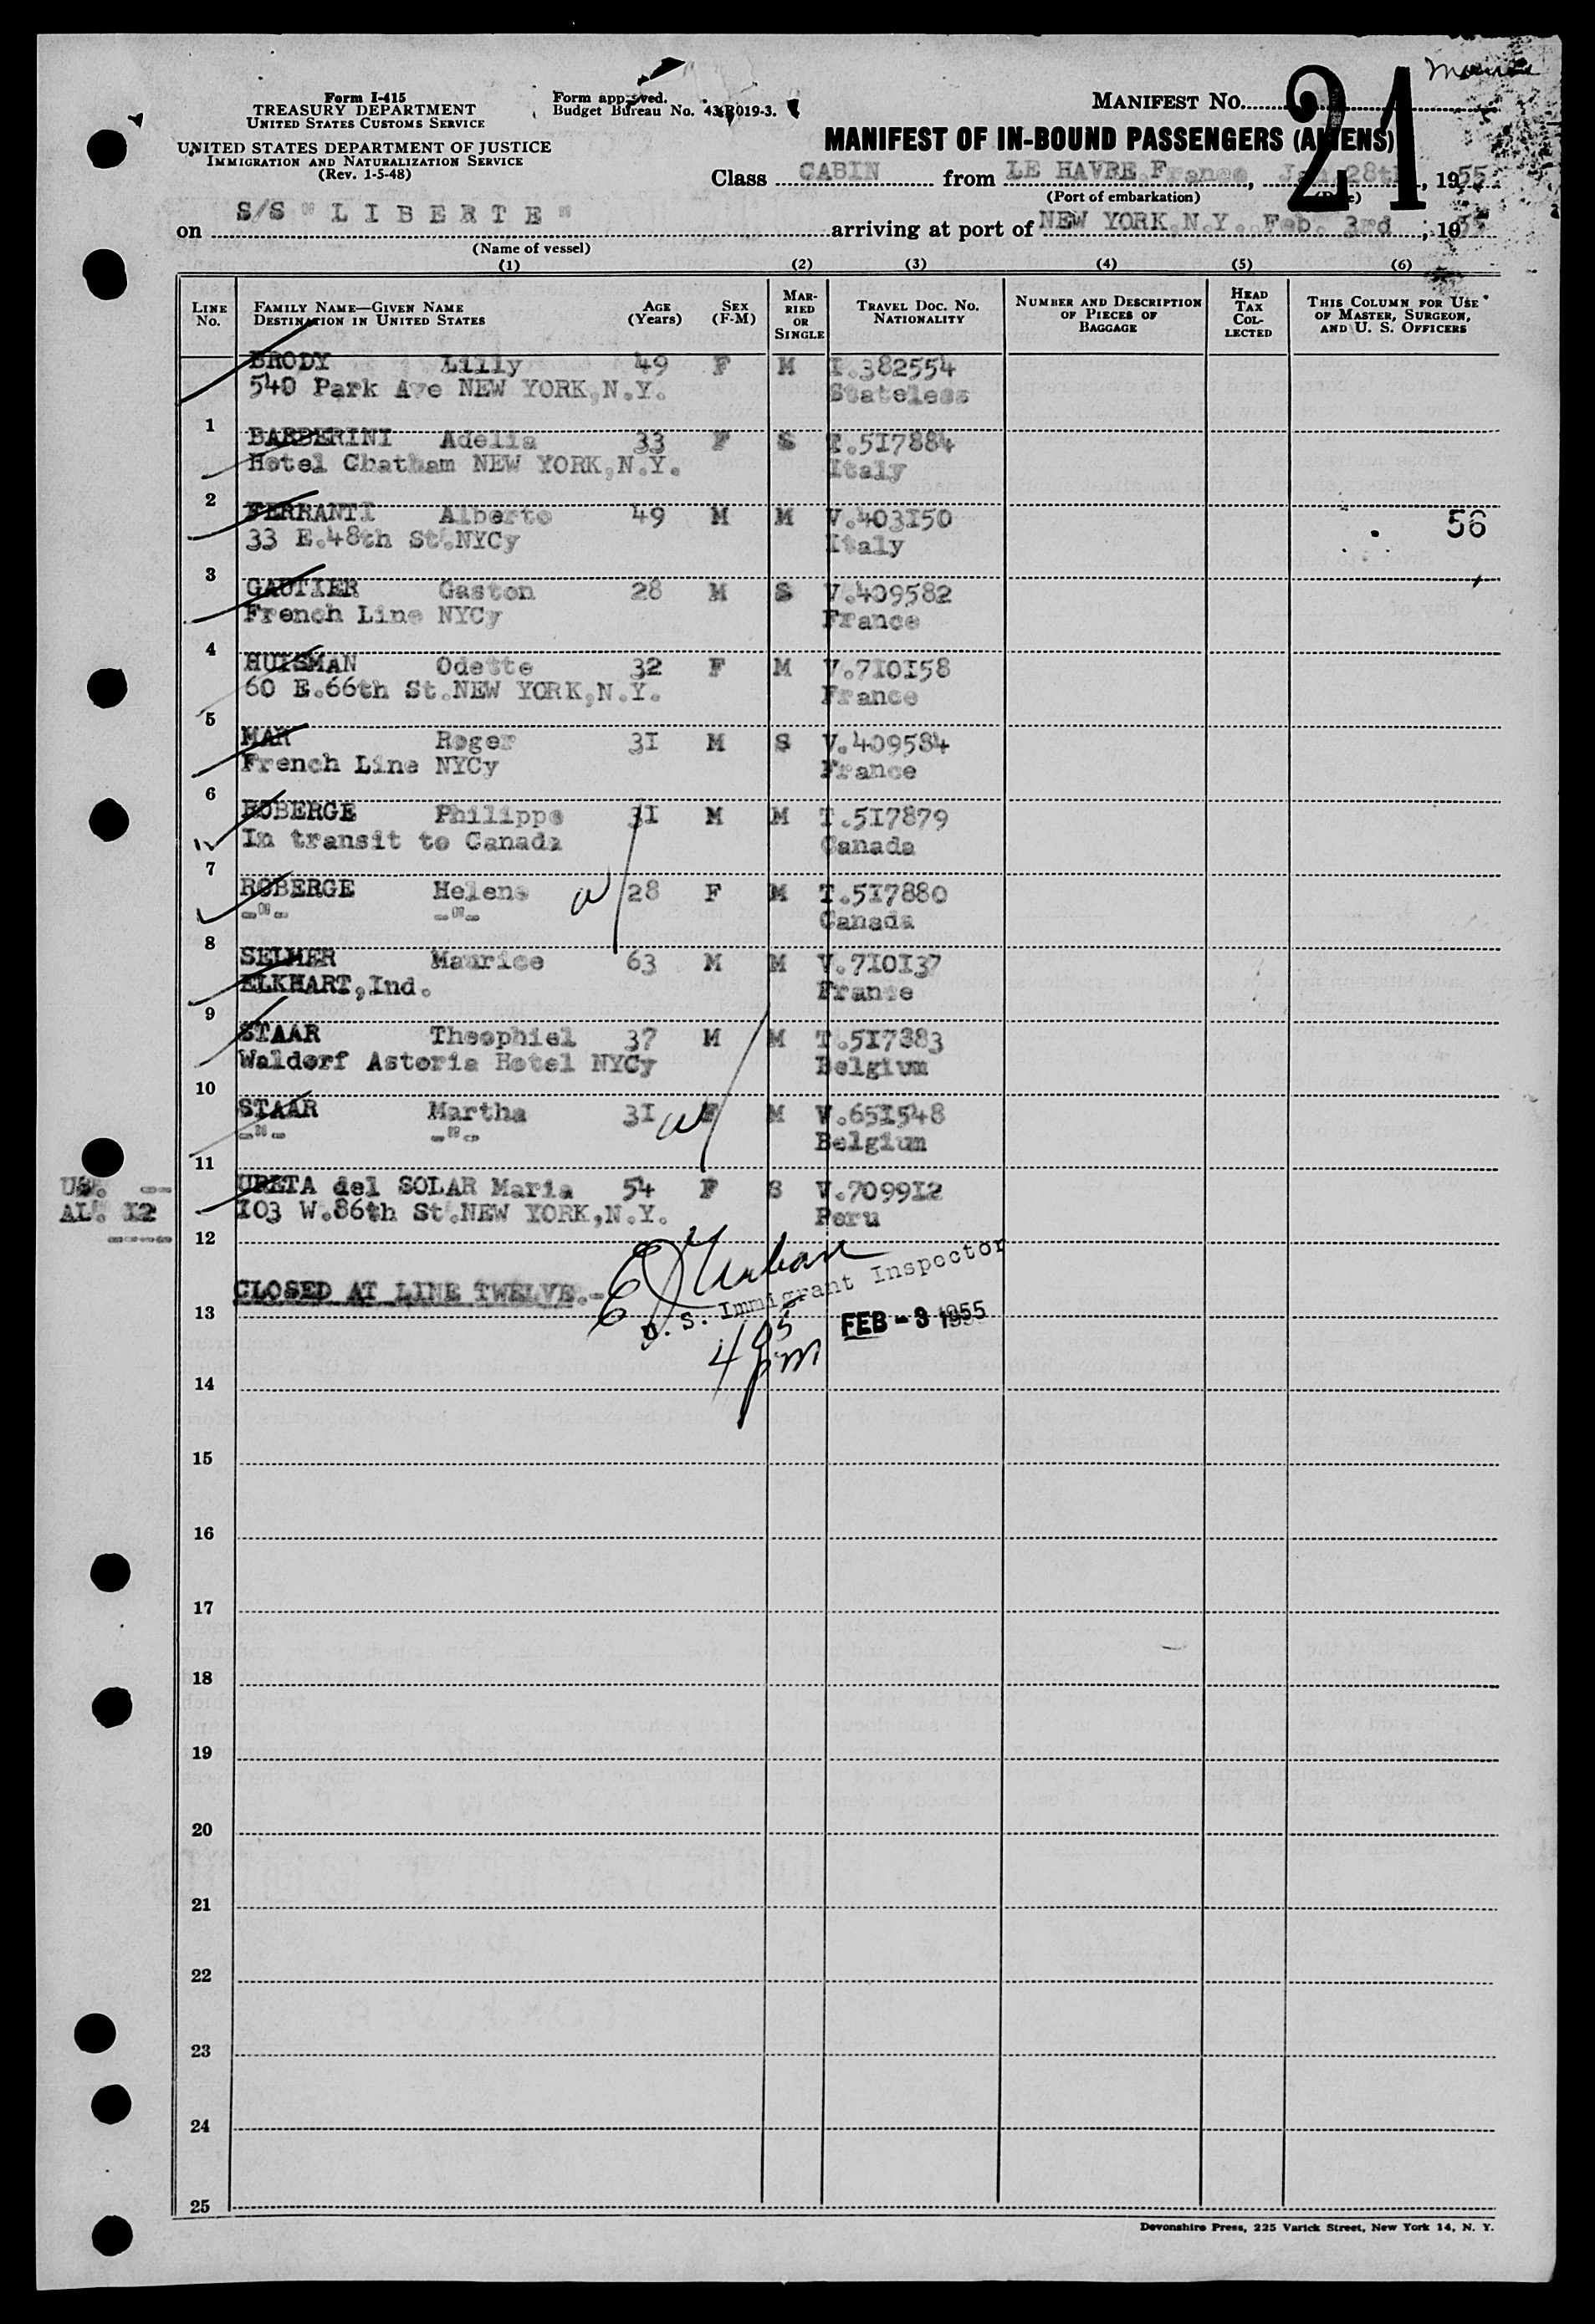 Form I-415
TREASURY DEPARTMENT
UNITED STATES CUSTOMS SERVICE
UNITED STATES DEPARTMENT OF JUSTICE
IMMIGRATION AND NATURALIZATION SERVICE
(Rev. 1-5-48)
Form approved.
Budget Bureau No. 43-R019-3.
MANIFEST NO. 21
MANIFEST OF IN-BOUND PASSENGERS (ALIENS)
Class CABIN from LE HAVRE.France, Jan.28th, 1955
(Port of embarkation) (Date)
on S/S "LIBERTE" arriving at port of NEW YORK,N.Y. Feb. 3rd, 1955
(Name of vessel)
(1) (2) (3) (4) (5) (6)
LINE No. FAMILY NAME—GIVEN NAME DESTINATION IN UNITED STATES AGE (Years) SEX (F-M) MARRIED OR SINGLE TRAVEL DOC. NO. NATIONALITY NUMBER AND DESCRIPTION OF PIECES OF BAGGAGE HEAD TAX COLLECTED THIS COLUMN FOR USE OF MASTER, SURGEON, AND U. S. OFFICERS
BRODY Lilly 49 F M I.382554
540 Park Ave NEW YORK,N.Y. Stateless
1
BARBERINI Adelia 33 F S T.517884
Hotel Chatham NEW YORK,N.Y. Italy
2
FERRANTI Alberto 49 M M V.403I50 56
33 E.48th St.NYCy Italy
3
GAUTIER Gaston 28 M S V.409582
French Line NYCy France
4
HUISMAN Odette 32 F M V.7I0I58
60 E.66th St.NEW YORK,N.Y. France
5
MAR Roger 3I M S V.409584
French Line NYCy France
6
ROBERGE Philippe 3I M M T.5I7879
In transit to Canada Canada
7
ROBERGE Helene 28 F M T.5I7880
-"- -"- Canada
8
SELMER Maurice 63 M M V.7I0I37
ELKHART,Ind. France
9
STAAR Theophiel 37 M M T.5I7883
Waldorf Astoria Hotel NYCy Belgium
10
STAAR Martha 3I F M V.65I548
-"- -"- Belgium
11
US. --
URETA del SOLAR Maria 54 F S V.7099I2
AL. I2
I03 W.86th St.NEW YORK,N.Y. Peru
12
CLOSED AT LINE TWELVE.-
U. S. Immigrant Inspector
13
FEB - 3 1955
4 05 pm
14
15
16
17
18
19
20
21
22
23
24
25
Devonshire Press, 225 Varick Street, New York 14, N. Y.